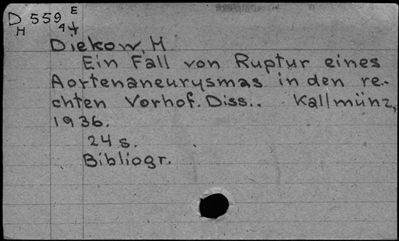 D 559 E
H 44
Diekow, H
Ein Fall von Ruptur eines
Aortenaneurysmas in den re-
chten Vorhof. Diss.. Kallmünz,
1936.
24 s.
Bibliogr.